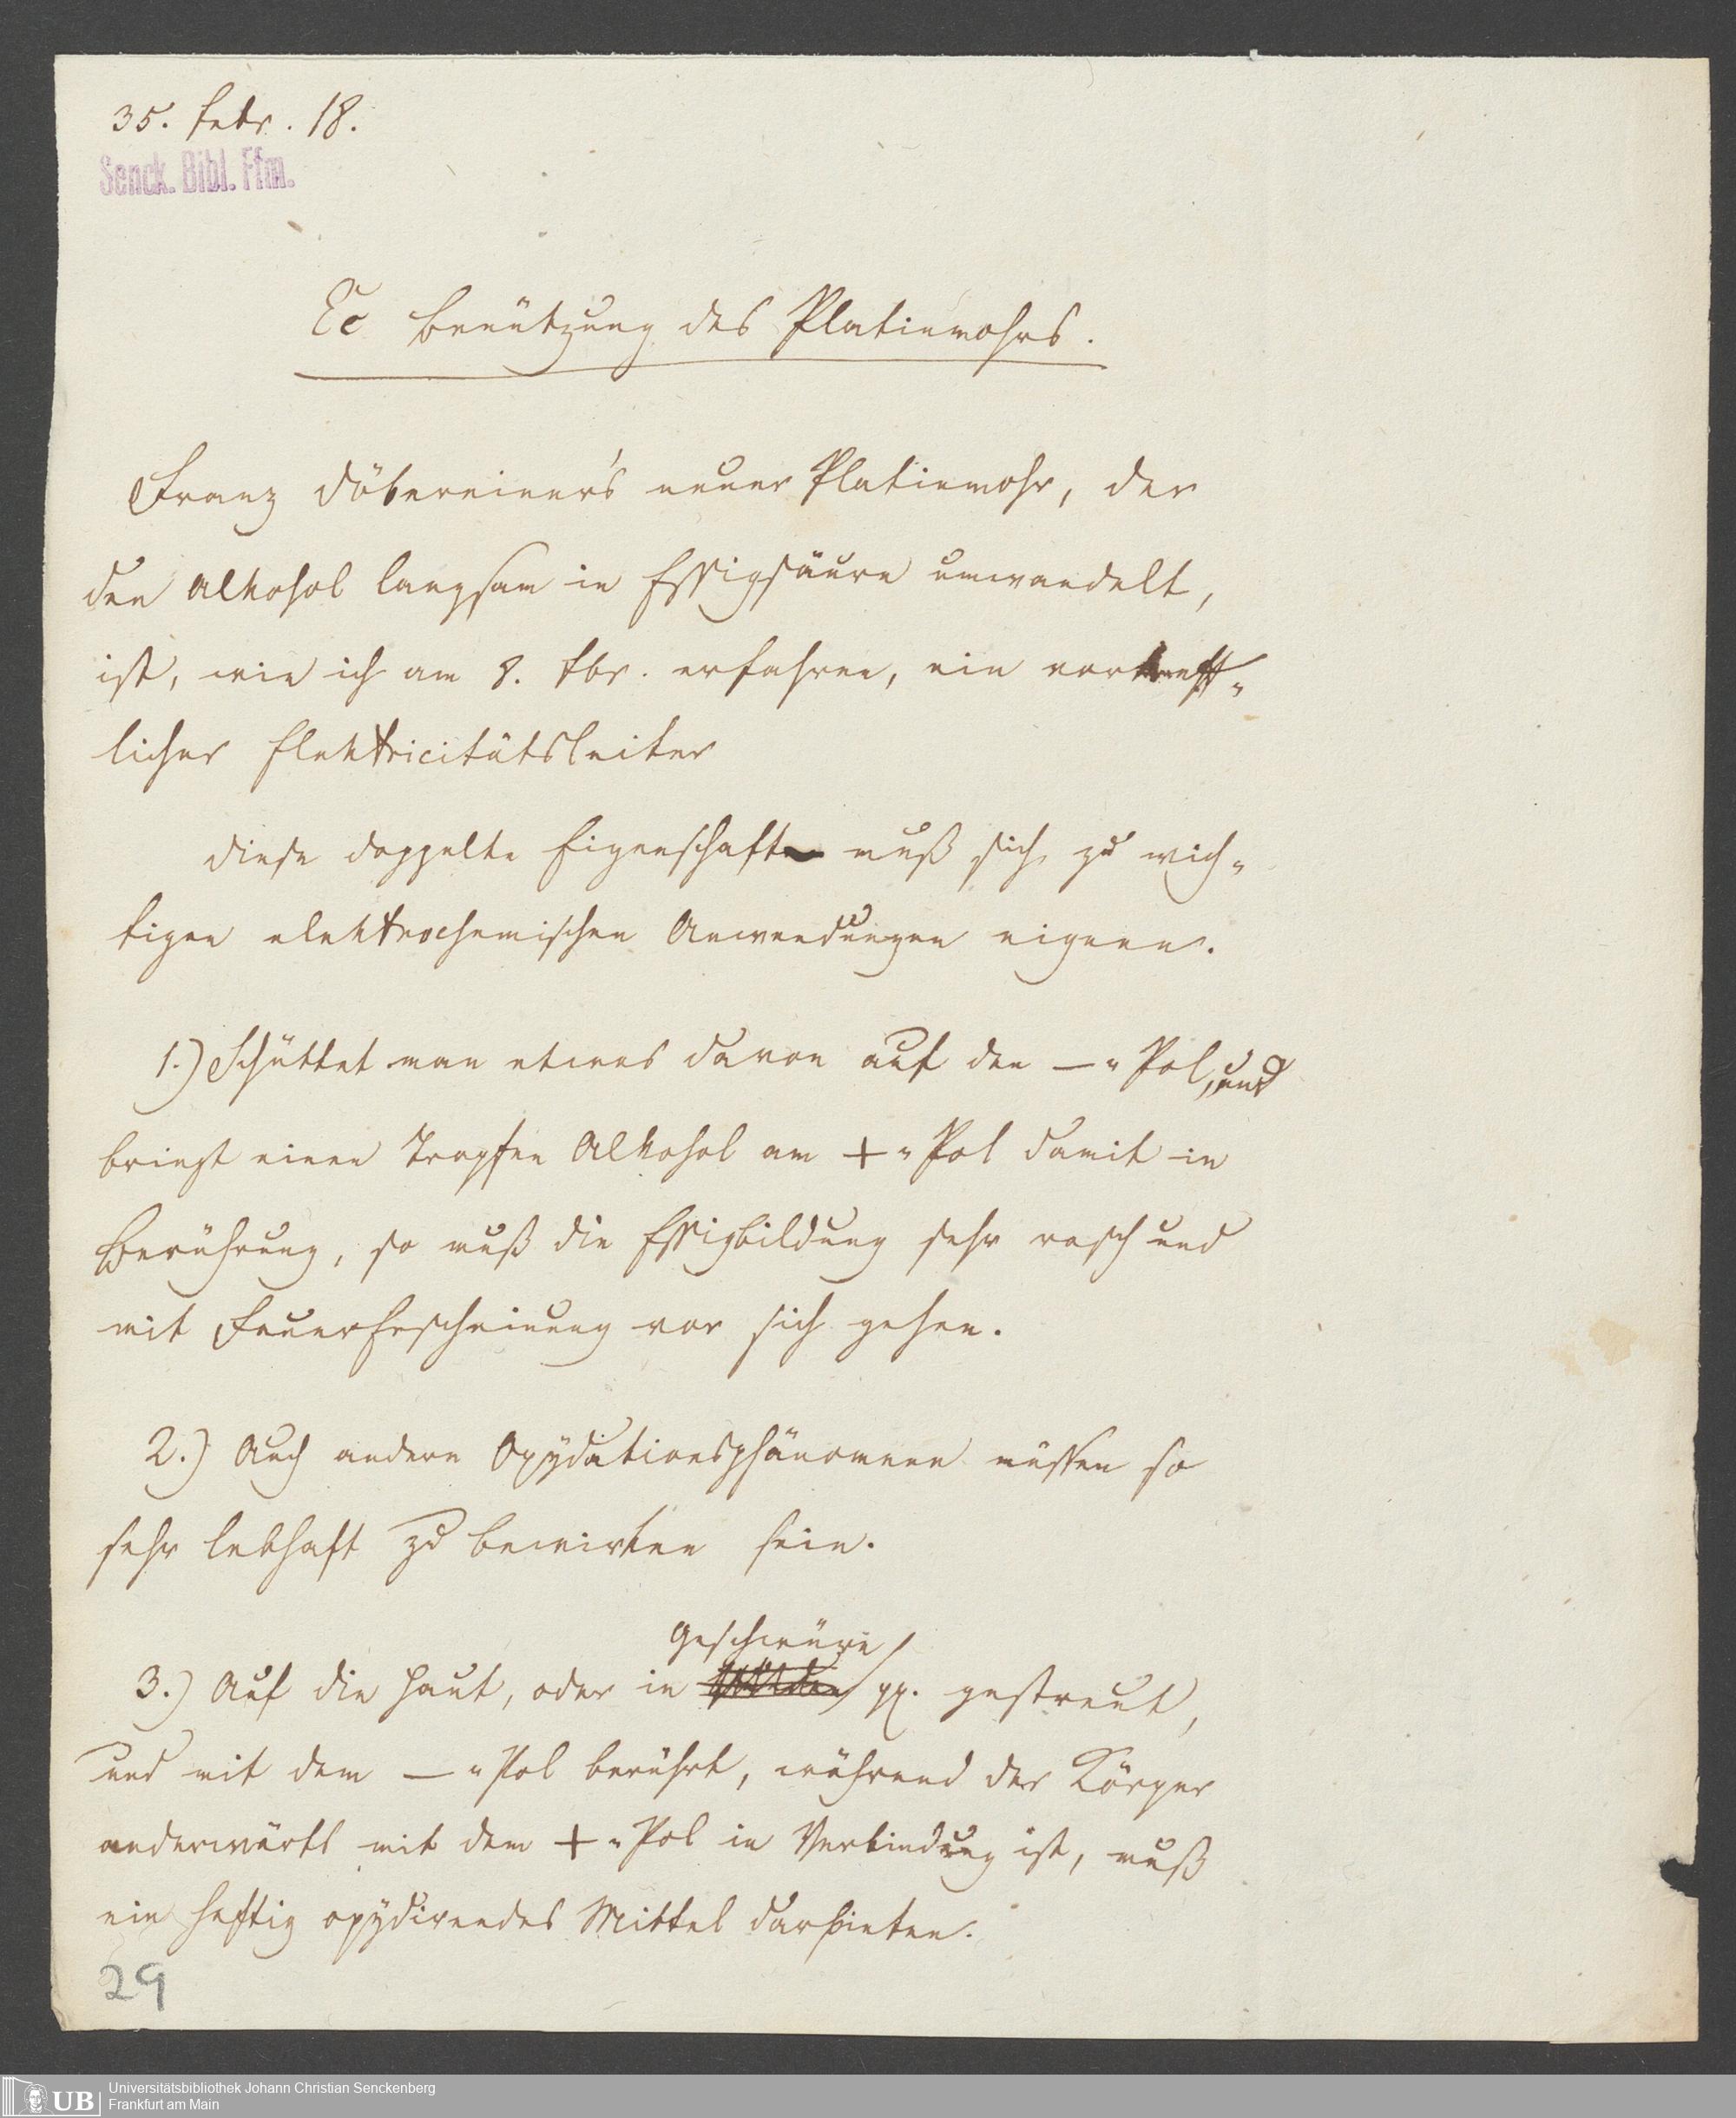 35. Febr. 18.
Senck. Bibl. Ffm.
Ec Benützung des Platinmohrs.
Franz Döbereiner's neuer Platinmohr, der
den Alkohol langsam in Essigsäure umwandelt,
ist, wie ich am 8. fbr. erfahren, ein vortreff-
licher Elektricitätsleiter
Diese doppelte Eigenschaft muß sich zu wich-
tigen elektrochemischen Anwendungen eignen.
1.) Schüttet man etwas davon auf den —-Pol, und
bringt einen Tropfen Alkohol am +-Pol damit in
Berührung, so muß die Essigbildung sehr rasch und
mit FeuerErscheinung vor sich gehen.
2.) Auch andere Oxÿdationsphänomene müssen so
sehr lebhaft zu bewirken sein.
Geschwüre
3.) Auf die Haut, oder in pp. gestreut,
und mit dem —-Pol berührt, während der Körper
anderwärts mit dem +-Pol in Verbindung ist, muß
ein heftig oxÿdirendes Mittel darbieten.
29
UB Universitätsbibliothek Johann Christian Senckenberg
Frankfurt am Main